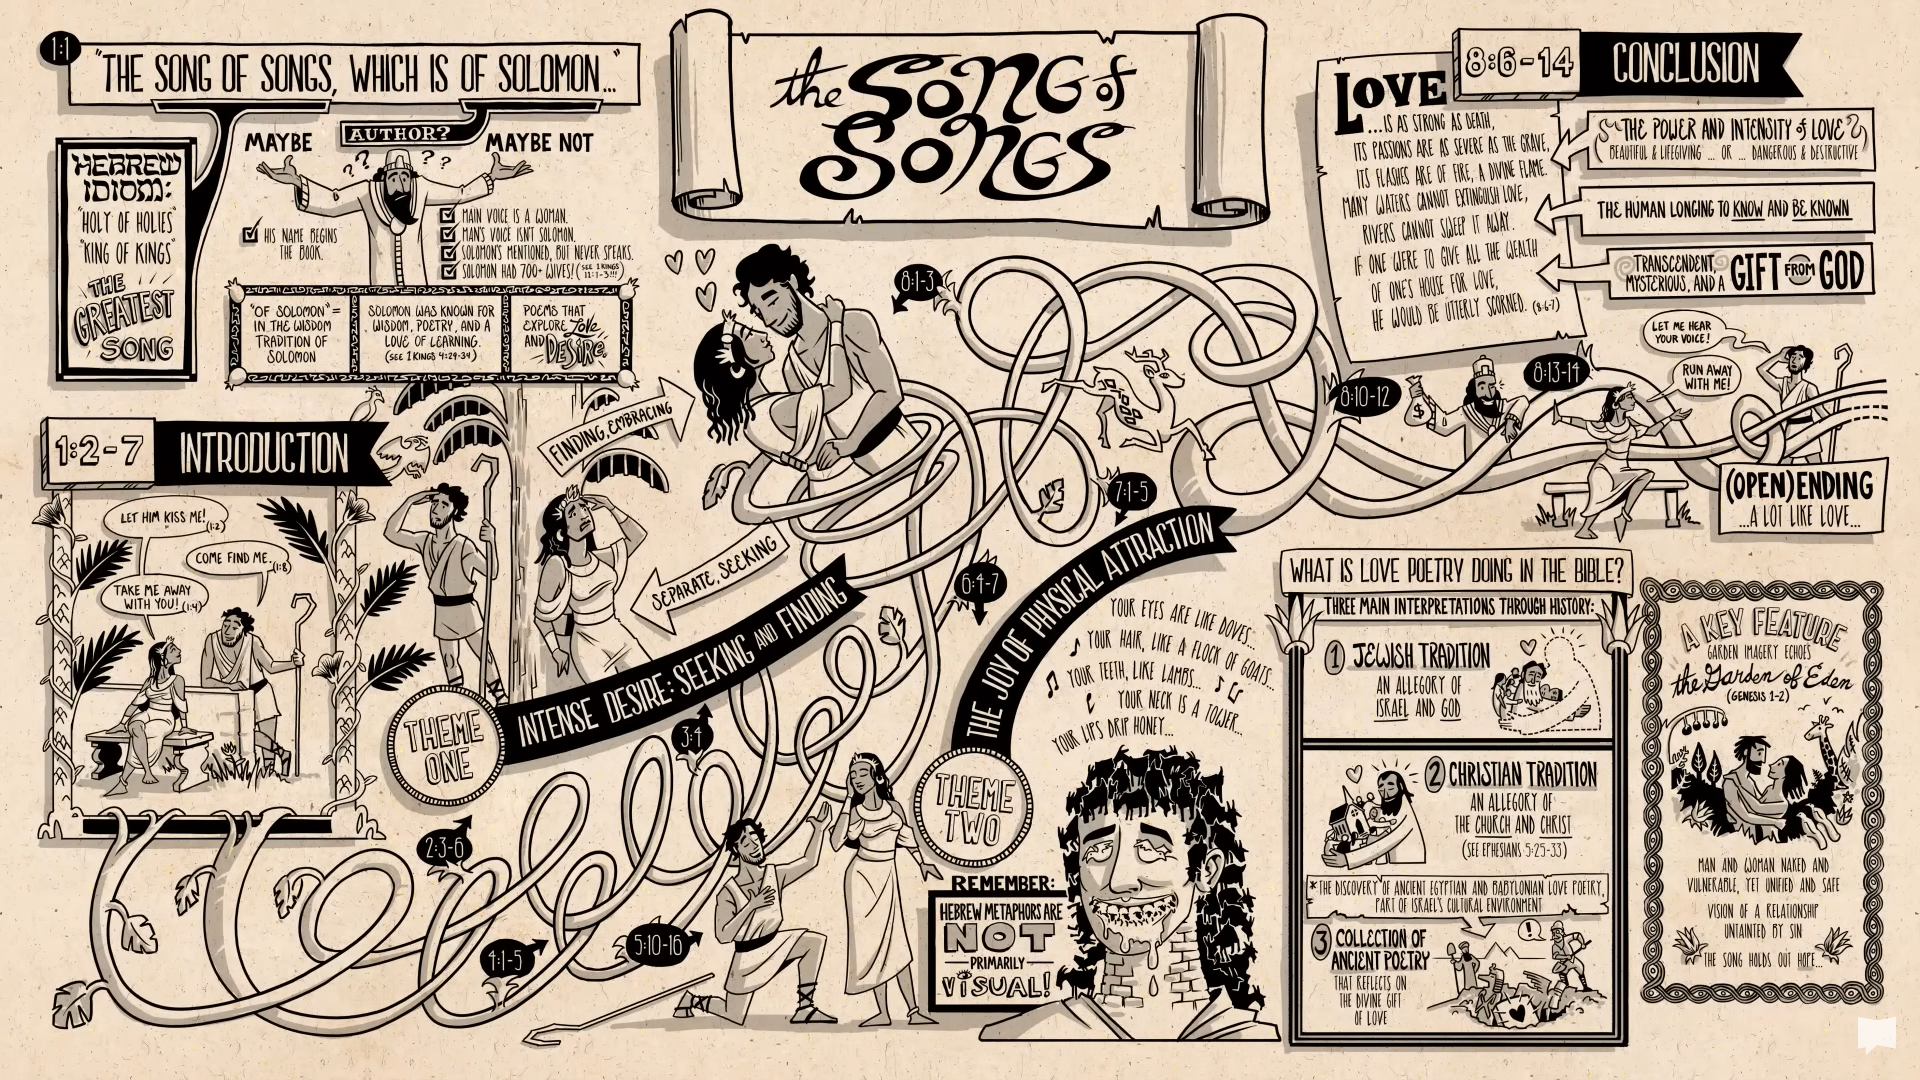 the Song of
Songs
1:1
"THE SONG OF SONGS, WHICH IS OF SOLOMON..."
HEBREW
IDIOM:
"HOLY OF HOLIES"
"KING OF KINGS"
THE
GREATEST
SONG
AUTHOR?
MAYBE
MAYBE NOT
? ? ? ?
HIS NAME BEGINS
THE BOOK.
MAIN VOICE IS A WOMAN.
MAN'S VOICE ISN'T SOLOMON.
SOLOMON'S MENTIONED, BUT NEVER SPEAKS.
SOLOMON HAD 700+ WIVES! (SEE 1 KINGS
11:1-3!!!)
"OF SOLOMON" =
IN THE WISDOM
TRADITION OF
SOLOMON
SOLOMON WAS KNOWN FOR
WISDOM, POETRY, AND A
LOVE OF LEARNING.
(SEE 1 KINGS 4:29-34)
POEMS THAT
EXPLORE Love
AND DESIRE.
1:2-7
INTRODUCTION
LET HIM KISS ME! (1:2)
COME FIND ME... (1:8)
TAKE ME AWAY
WITH YOU! (1:4)
FINDING, EMBRACING
SEPARATE, SEEKING
THEME
ONE
INTENSE DESIRE: SEEKING AND FINDING
2:3-6
3:4
4:1-5
5:10-16
THEME
TWO
THE JOY OF PHYSICAL ATTRACTION
6:4-7
7:1-5
8:1-3
YOUR EYES ARE LIKE DOVES...
YOUR HAIR, LIKE A FLOCK OF GOATS...
YOUR TEETH, LIKE LAMBS...
YOUR NECK IS A TOWER...
YOUR LIPS DRIP HONEY...
REMEMBER:
HEBREW METAPHORS ARE
NOT
PRIMARILY
VISUAL!
8:6-14
CONCLUSION
LOVE
...IS AS STRONG AS DEATH,
ITS PASSIONS ARE AS SEVERE AS THE GRAVE,
ITS FLASHES ARE OF FIRE, A DIVINE FLAME.
MANY WATERS CANNOT EXTINGUISH LOVE,
RIVERS CANNOT SWEEP IT AWAY.
IF ONE WERE TO GIVE ALL THE WEALTH
OF ONE'S HOUSE FOR LOVE,
HE WOULD BE UTTERLY SCORNED. (8:6-7)
THE POWER AND INTENSITY of LOVE
BEAUTIFUL & LIFEGIVING ... OR ... DANGEROUS & DESTRUCTIVE
THE HUMAN LONGING TO KNOW AND BE KNOWN
TRANSCENDENT,
MYSTERIOUS, AND A GIFT FROM GOD
8:10-12
$
8:13-14
LET ME HEAR
YOUR VOICE!
RUN AWAY
WITH ME!
(OPEN) ENDING
...A LOT LIKE LOVE...
WHAT IS LOVE POETRY DOING IN THE BIBLE?
THREE MAIN INTERPRETATIONS THROUGH HISTORY:
1 JEWISH TRADITION
AN ALLEGORY OF
ISRAEL AND GOD
2 CHRISTIAN TRADITION
AN ALLEGORY OF
THE CHURCH AND CHRIST
(SEE EPHESIANS 5:25-33)
*THE DISCOVERY OF ANCIENT EGYPTIAN AND BABYLONIAN LOVE POETRY,
PART OF ISRAEL'S CULTURAL ENVIRONMENT
3 COLLECTION OF
ANCIENT POETRY
THAT REFLECTS ON
THE DIVINE GIFT
OF LOVE
!
A KEY FEATURE
GARDEN IMAGERY ECHOES
the Garden of Eden
(GENESIS 1-2)
MAN AND WOMAN NAKED AND
VULNERABLE, YET UNIFIED AND SAFE
VISION OF A RELATIONSHIP
UNTAINTED BY SIN
THE SONG HOLDS OUT HOPE...